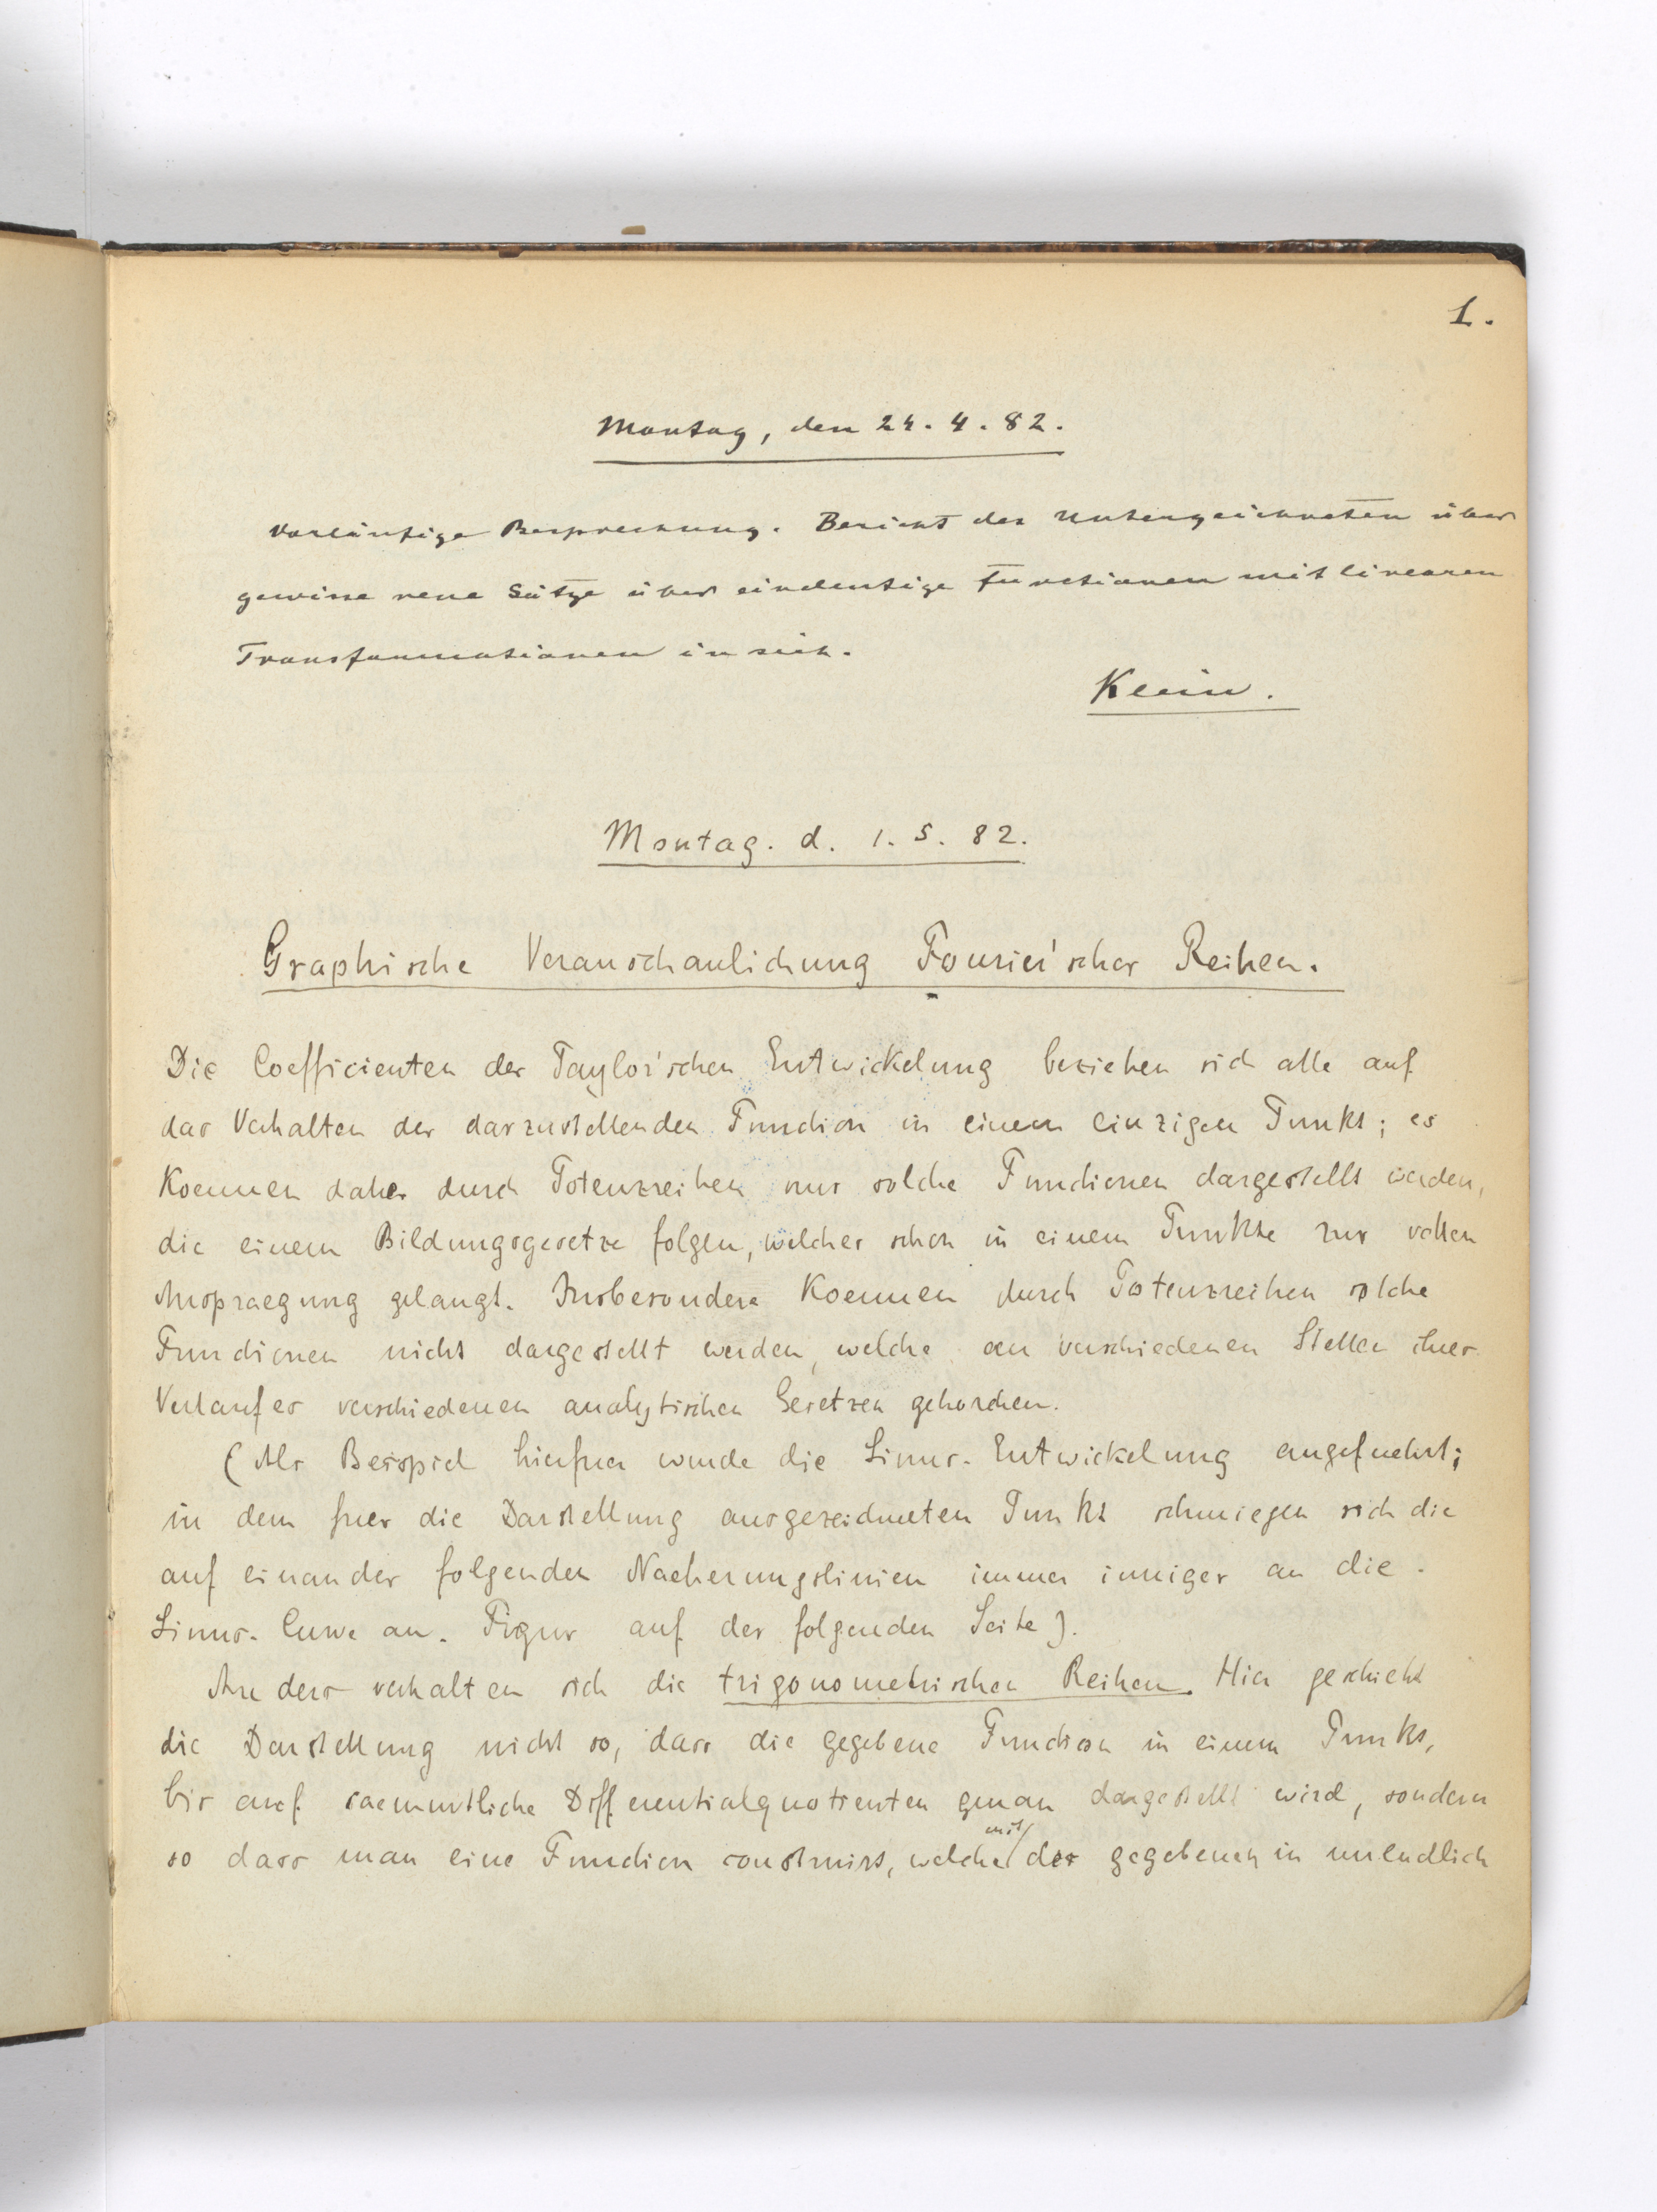 1.
Montag, den 24. 4. 82.
Vorläufige Besprechung. Bericht des Unterzeichneten über
gewisse neue Sätze über eindeutige Functionen mit linearen
Transformationen in sich.
Klein.
Montag. d. 1. 5. 82.
Graphische Veranschaulichung Fourier'scher Reihen.
Die Coefficienten der Taylor'schen Entwickelung beziehen sich alle auf
das Verhalten der darzustellenden Function in einem einzigen Punkt; es
koennen daher durch Potenzreihen nur solche Functionen dargestellt werden,
die einem Bildungsgesetze folgen, welches schon in einem Punkte zur vollen
Auspraegung gelangt. Insbesondere koennen durch Potenzreihen solche
Functionen nicht dargestellt werden, welche an verschiedenen Stellen ihres
Verlaufes verschiedenen analytischen Gesetzen gehorchen.
(Als Beispiel hierfuer wurde die Sinus-Entwickelung angefuehrt;
in dem fuer die Darstellung ausgezeichneten Punkt schmiegen sich die
auf einander folgenden Naeherungslinien immer inniger an die
Sinus-Curve an. Figur auf der folgenden Seite).
Anders verhalten sich die trigonometrischen Reihen. Hier geschieht
die Darstellung nicht so, dass die gegebene Function in einem Punkt,
bis auf saemmtliche Differentialquotienten genau dargestellt wird, sondern
so dass man eine Function construirt, welche mit der gegebenen in unendlich